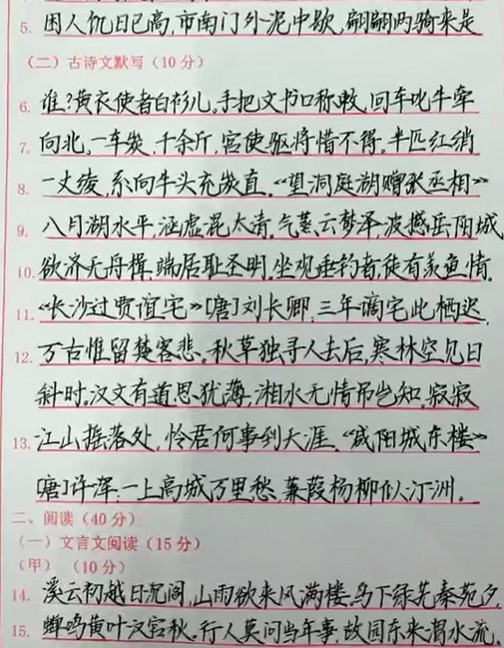 5. 困人饥日已高,市南门外泥中歇,翩翩两骑来是
(二)古诗文默写(10分)
6. 谁?黄衣使者白衫儿。手把文书口称敕,回车叱牛牵
7. 向北,一车炭,千余斤,宫使驱将惜不得,半匹红绡
8. 一丈绫,系向牛头充炭直。《望洞庭湖赠张丞相》
9. 八月湖水平,涵虚混太清。气蒸云梦泽,波撼岳阳城,
10. 欲济无舟楫,端居耻圣明。坐观垂钓者,徒有羡鱼情。
11. 《长沙过贾谊宅》[唐]刘长卿:三年谪宅此栖迟,
12. 万古惟留楚客悲。秋草独寻人去后,寒林空见日
斜时。汉文有道恩犹薄,湘水无情吊岂知,寂寂
13. 江山摇落处,怜君何事到天涯。《咸阳城东楼》
[唐]许浑:一上高城万里愁,蒹葭杨柳似汀洲。
二、阅读(40分)
(一)文言文阅读(15分)
(甲)(10分)
14. 溪云初越日沉阁,山雨欲来风满楼。鸟下绿芜秦苑夕,
15. 蝉鸣黄叶汉宫秋。行人莫问当年事,故园东来渭水流。